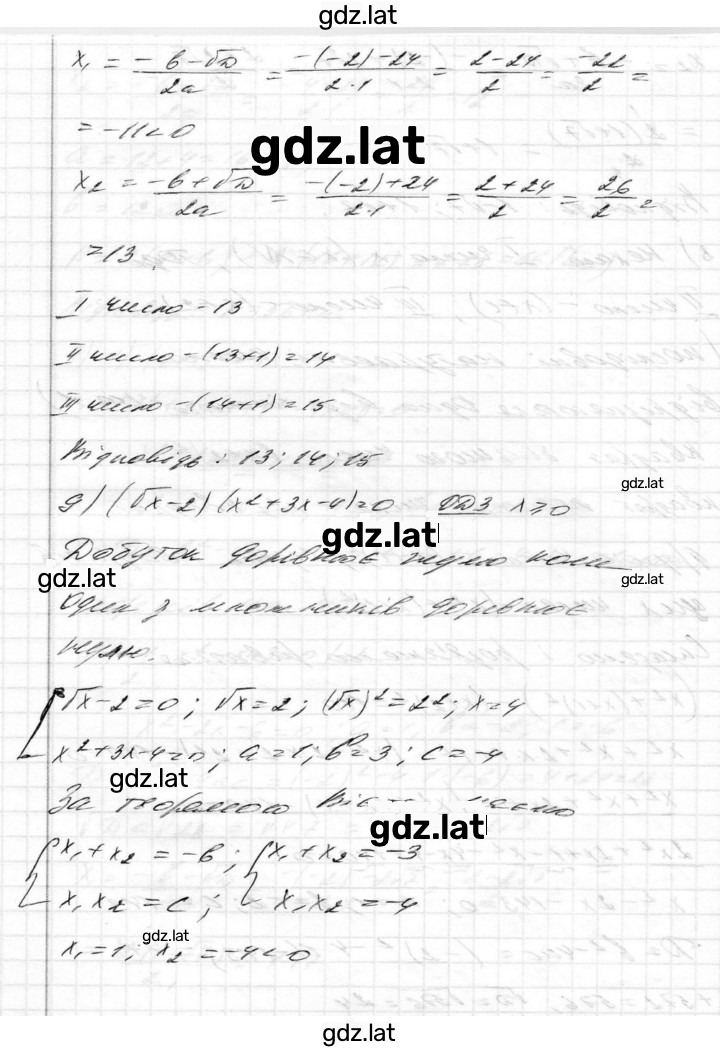 gdz.lat
x₁ = (-b-√D)/2a = (-(-2)-24)/(2·1) = (2-24)/2 = -22/2 =
= -11<0
gdz.lat
x₂ = (-b+√D)/2a = (-(-2)+24)/(2·1) = (2+24)/2 = 26/2 =
=13
I число -13
II число -(13+1)=14
III число -(14+1)=15
Відповідь: 13; 14; 15
gdz.lat
9) (√x-2)(x²+3x-4)=0 ОДЗ x≥0
gdz.lat
Добуток дорівнює нулю коли
gdz.lat
gdz.lat
один з множників дорівнює
нулю.
√x-2=0; √x=2; (√x)²=2²; x=4
x²+3x-4=0; a=1; b=3; c=-4
gdz.lat
За теоремою маємо
gdz.lat
{x₁+x₂=-b; {x₁+x₂=-3
x₁x₂=c; x₁x₂=-4
gdz.lat
x₁=1; x₂=-4<0
gdz.lat